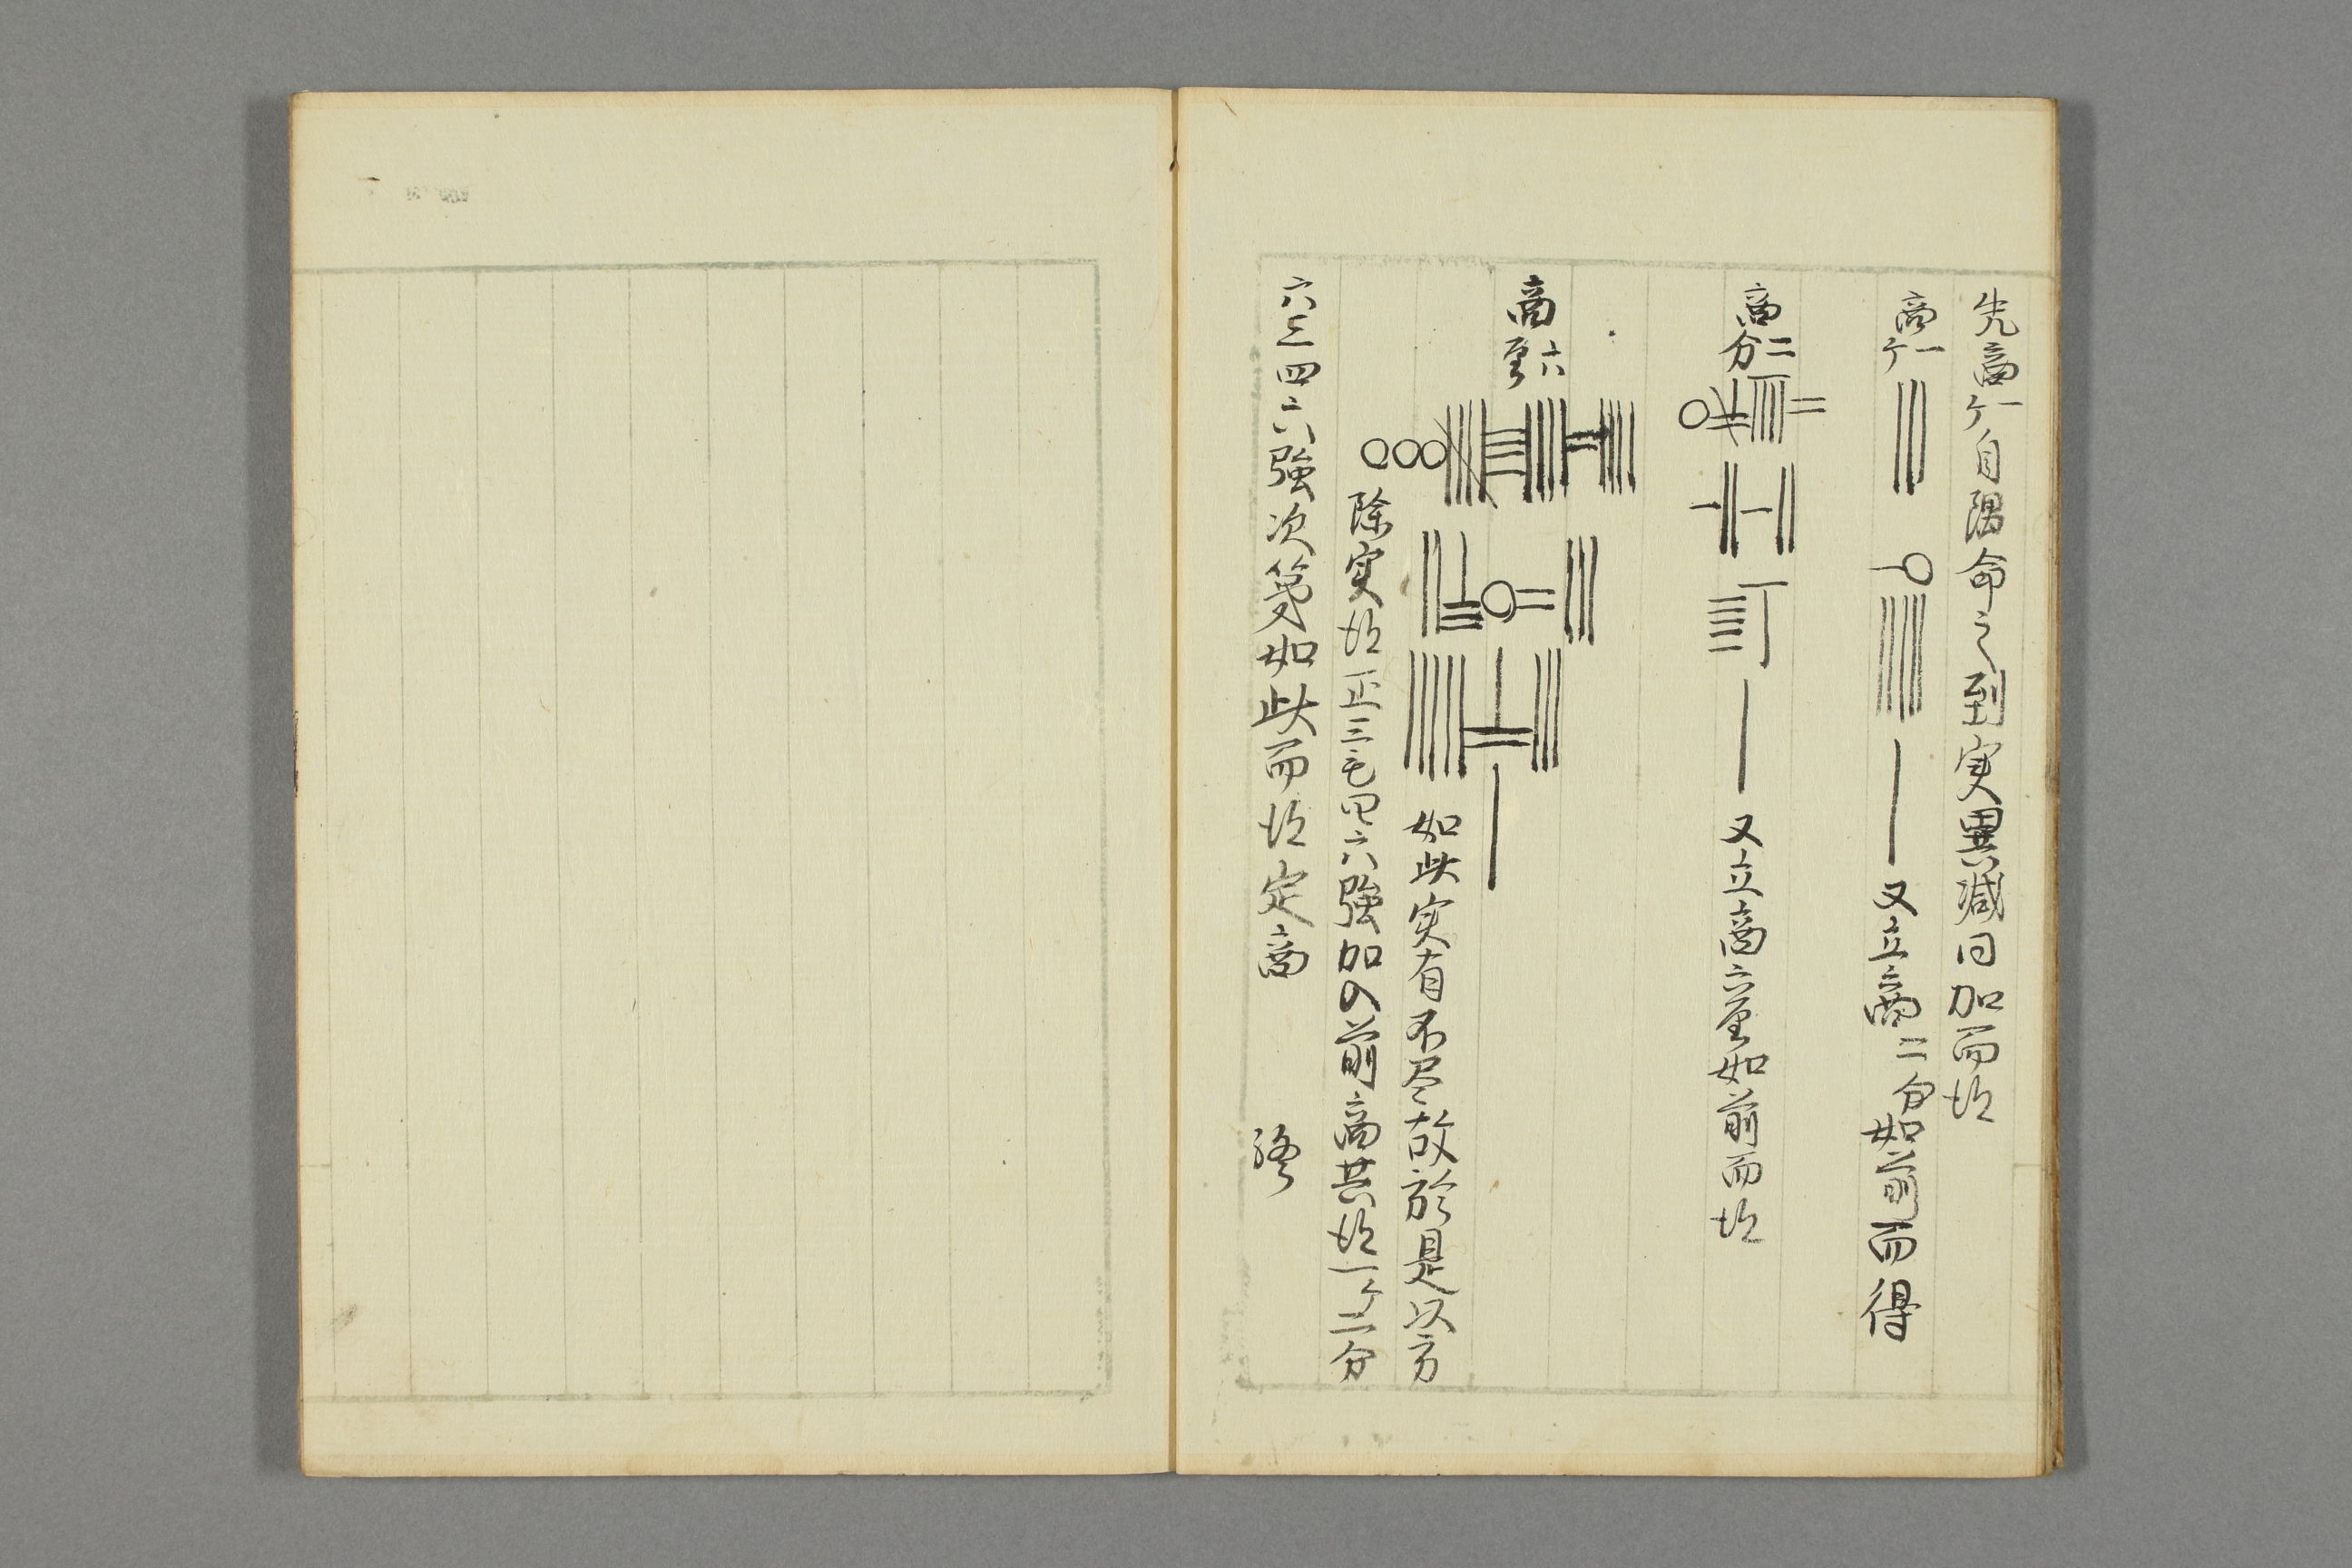 先商一ケ自隅命之到実異減同加而得
商一ケ
又立商二分如前而得
商二分
又立商六厘如前而得
商六厘
如此実有不尽故於是以方
除実得正三毛四六強加入前商共得一ケ二分
六三四六強次第如此而得定商
終